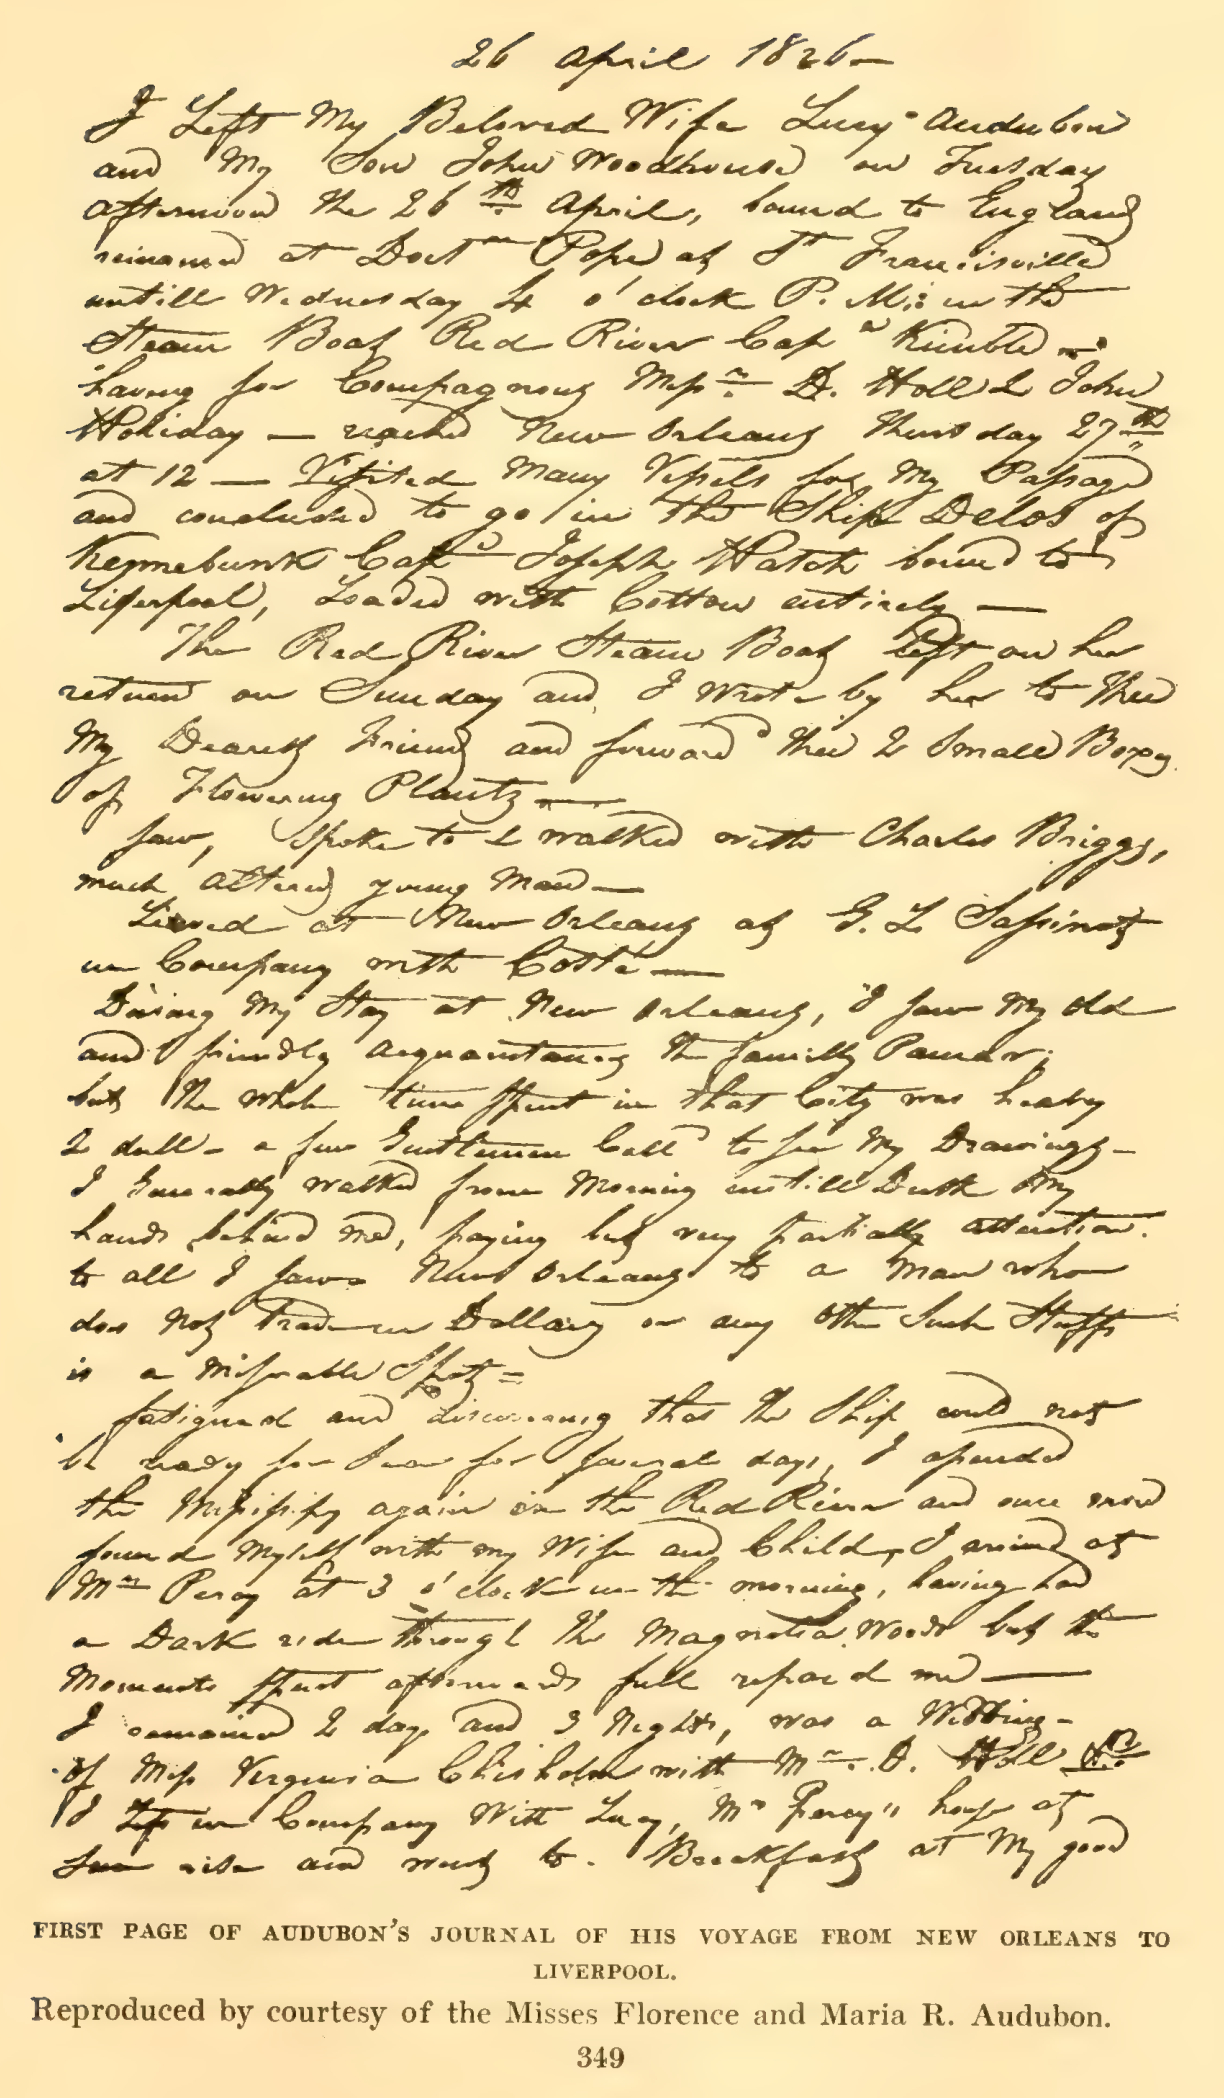 26 April 1826—
I Left My Beloved Wife Lucy Audubon
and My Son John Woodhouse on Tuesday
afternoon the 26th April, bound to England
remained at Doctr Pope at St Francisville
untill Wednesday 4 o'clock P. M.: in the
Steam Boat Red River Capn Kimble —
having for Compagnons Messrs D. Hall & John
Holiday — reached New Orleans Thursday 27th
at 12 — Visited Many Vessels for My Passage
and concluded to go in the Ship Delos of
Kennebunk Capt Joseph Hatch bound to
Liverpool, Loaded with Cotton entirely —
The Red River Steam Boat left on her
return on Sunday and I Wrote by her to Thee
My Dearest Friend and forward thee 2 Small Boxes
of Flowering Plants —
saw, spoke to & walked with Charles Briggs,
much altered young man —
Lived at New Orleans at G. L. Sapinot
in Company with Costé —
During My Stay at New Orleans, I saw my old
and friendly acquaintances the familly Pamar;
but the whole time spent in that City was heavy
& dull — a few Gentlemen Call to see My Drawings —
I Generally walked from Morning untill Dusk My
hands behind me, paying but very partially attention
to all I saw. New Orleans to a man who
does not trade in Dollars or any other Such Stuff
is a miserable Spot =
fatigued and discovering that the Ship could not
be ready for Sea for several days, I ascended
the Mississippy again in the Red River and once more
found Myself with my Wife and Child. I arrived at
Mrs Percy at 3 o'clock in the morning, having had
a Dark ride through the Magnolia Woods but the
Moments spent afterwards full repaid me —
I remained 2 days and 3 Nights, was a Wedding —
of Miss Virginia Chisholm with Mr. D. Hall &c.
I Left in Company With Lucy, Mrs Percy" house at
Sun rise and went to. Breakfast at My good
FIRST PAGE OF AUDUBON'S JOURNAL OF HIS VOYAGE FROM NEW ORLEANS TO
LIVERPOOL.
Reproduced by courtesy of the Misses Florence and Maria R. Audubon.
349